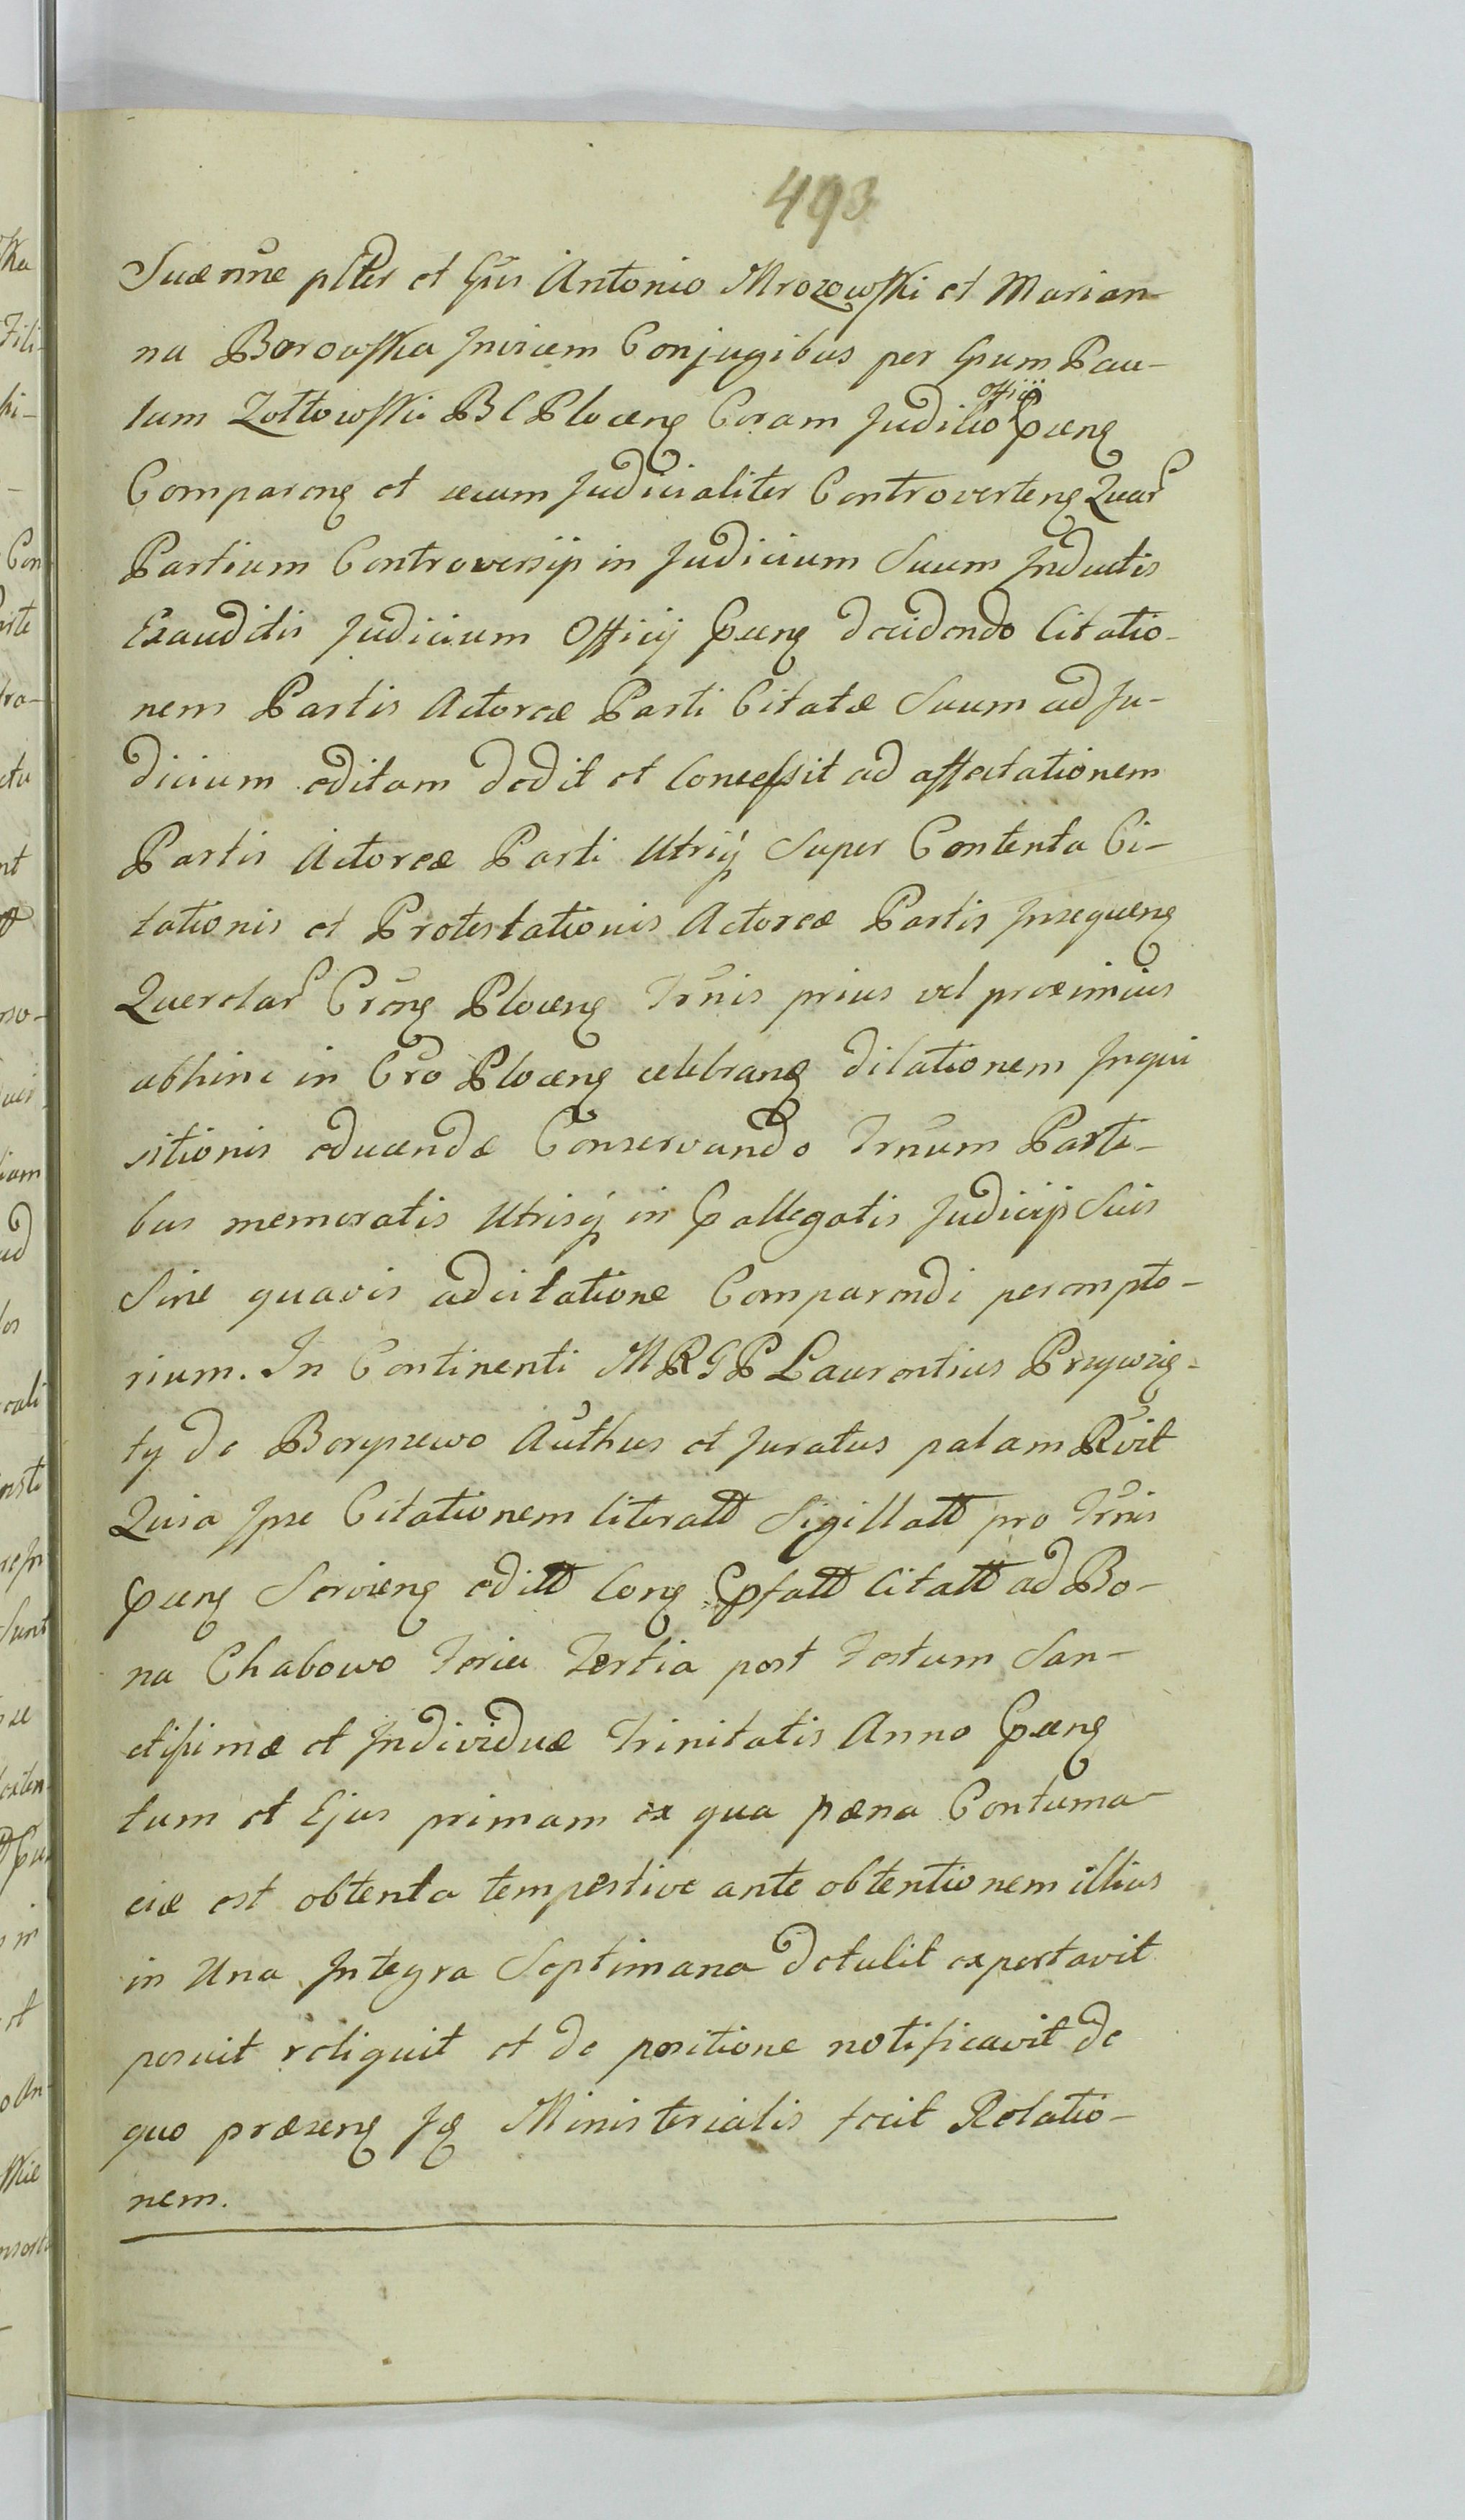 493
Suae nne plter et Gsis Antonio Mrozowski et Marian-
na Borowska Invicem Conjugibus per Gsum Pau-
lum Zołtowski B C Plocen Coram Judicio Officij Praen
Comparen et secum Judicialiter Controverten Quar
Partium Controversijs in Judicium Suum Inductis
Exauditis Judicium Officij Praen decidendo Citatio-
nem Partis Actoreæ Parti Citatæ Suum ad Ju-
dicium editam dedit et Concessit ad affectationem
Partis Actoreæ Parti Utriq Super Contenta Ci-
tationis et Protestationis Actoreæ Partis Insequen
Querelar Cren Plocen Trnis prius vel proximius
abhinc in Cro Plocen celebran dilationem Inqui
sitionis educendæ Conservando Trnum Parti-
bus memoratis Utrisq in Praallegatis Judicijs Suis
Sine quavis adcitatione Comparendi perempto-
rium. In Continenti M R G P Laurentius Przywzię-
ty de Boryszewo Authus et Juratus palam Rvit
Quia Ipse Citationem literatt Sigillatt pro Trnis
Praen Servien editt Con Praefatt Citatt ad Bo-
na Chabowo Feria Tertia post Festum San-
ctissimæ et Individuæ Trinitatis Anno Praen
tum et Ejus primam ex qua pæna Contuma-
ciæ est obtenta tempestive ante obtentionem illius
in Una Integra Septimana detulit exportavit
posuit reliquit et de positione notificavit de
quo præsen Ide Ministerialis fecit Relatio-
nem.